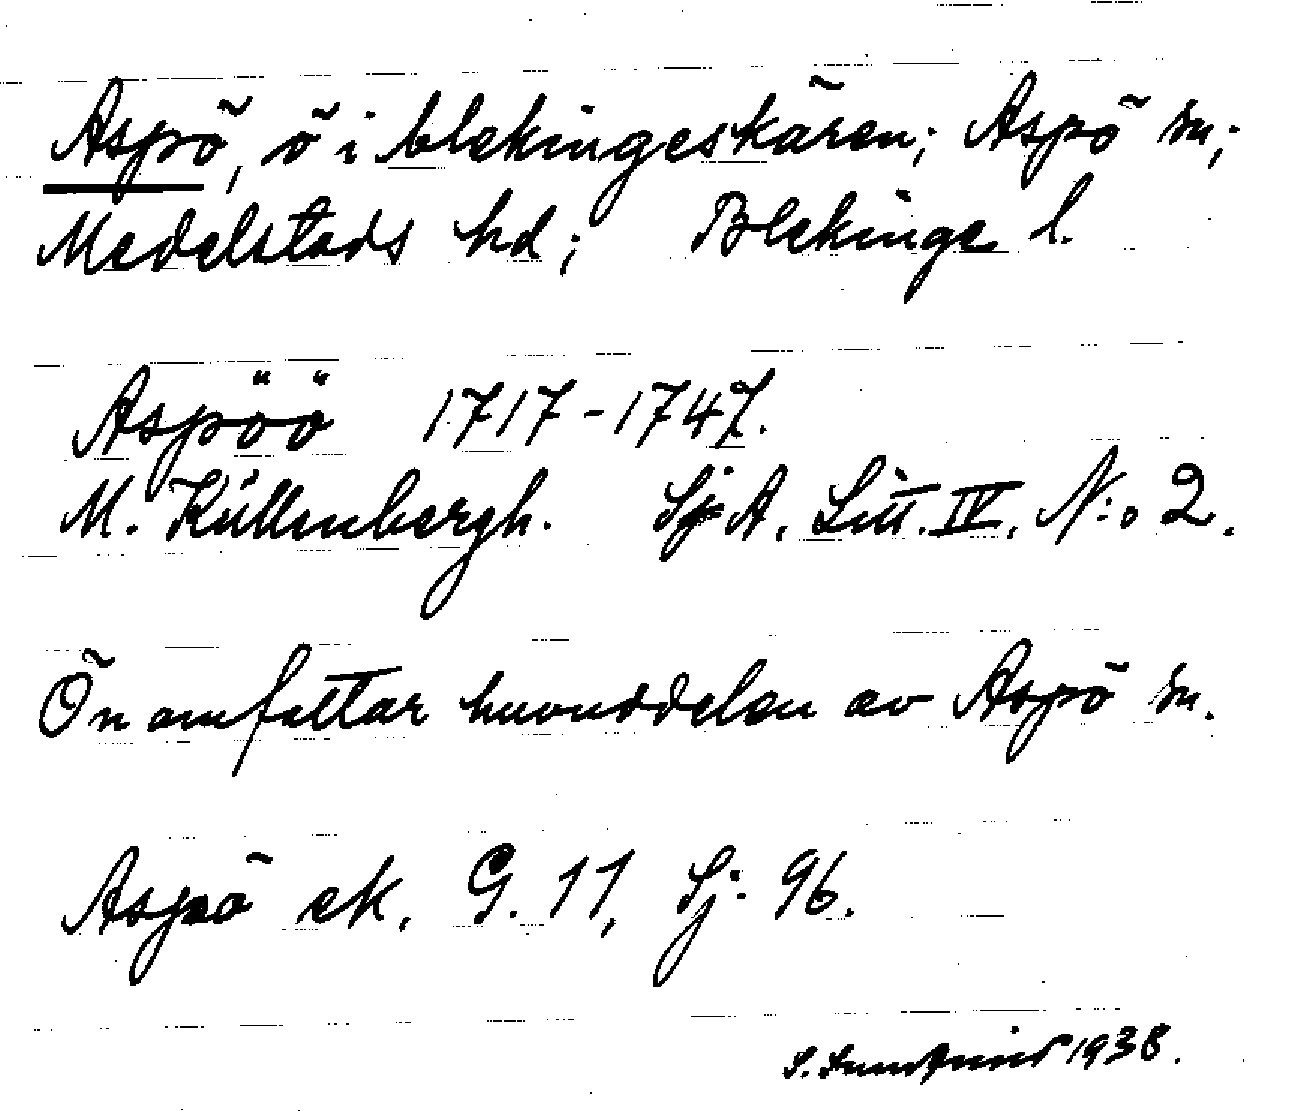 Aspö, ö i blekingeskären; Aspö sn;
Medelstads hd; Blekinge l.
Aspöö 1717-1747.
M. Küllenbergh. SjA. Litt. IV. N:o 2.
Ön omfattar huvuddelen av Aspö sn.
Aspö ek. G. 11, Sj. 96.
S. 1938.